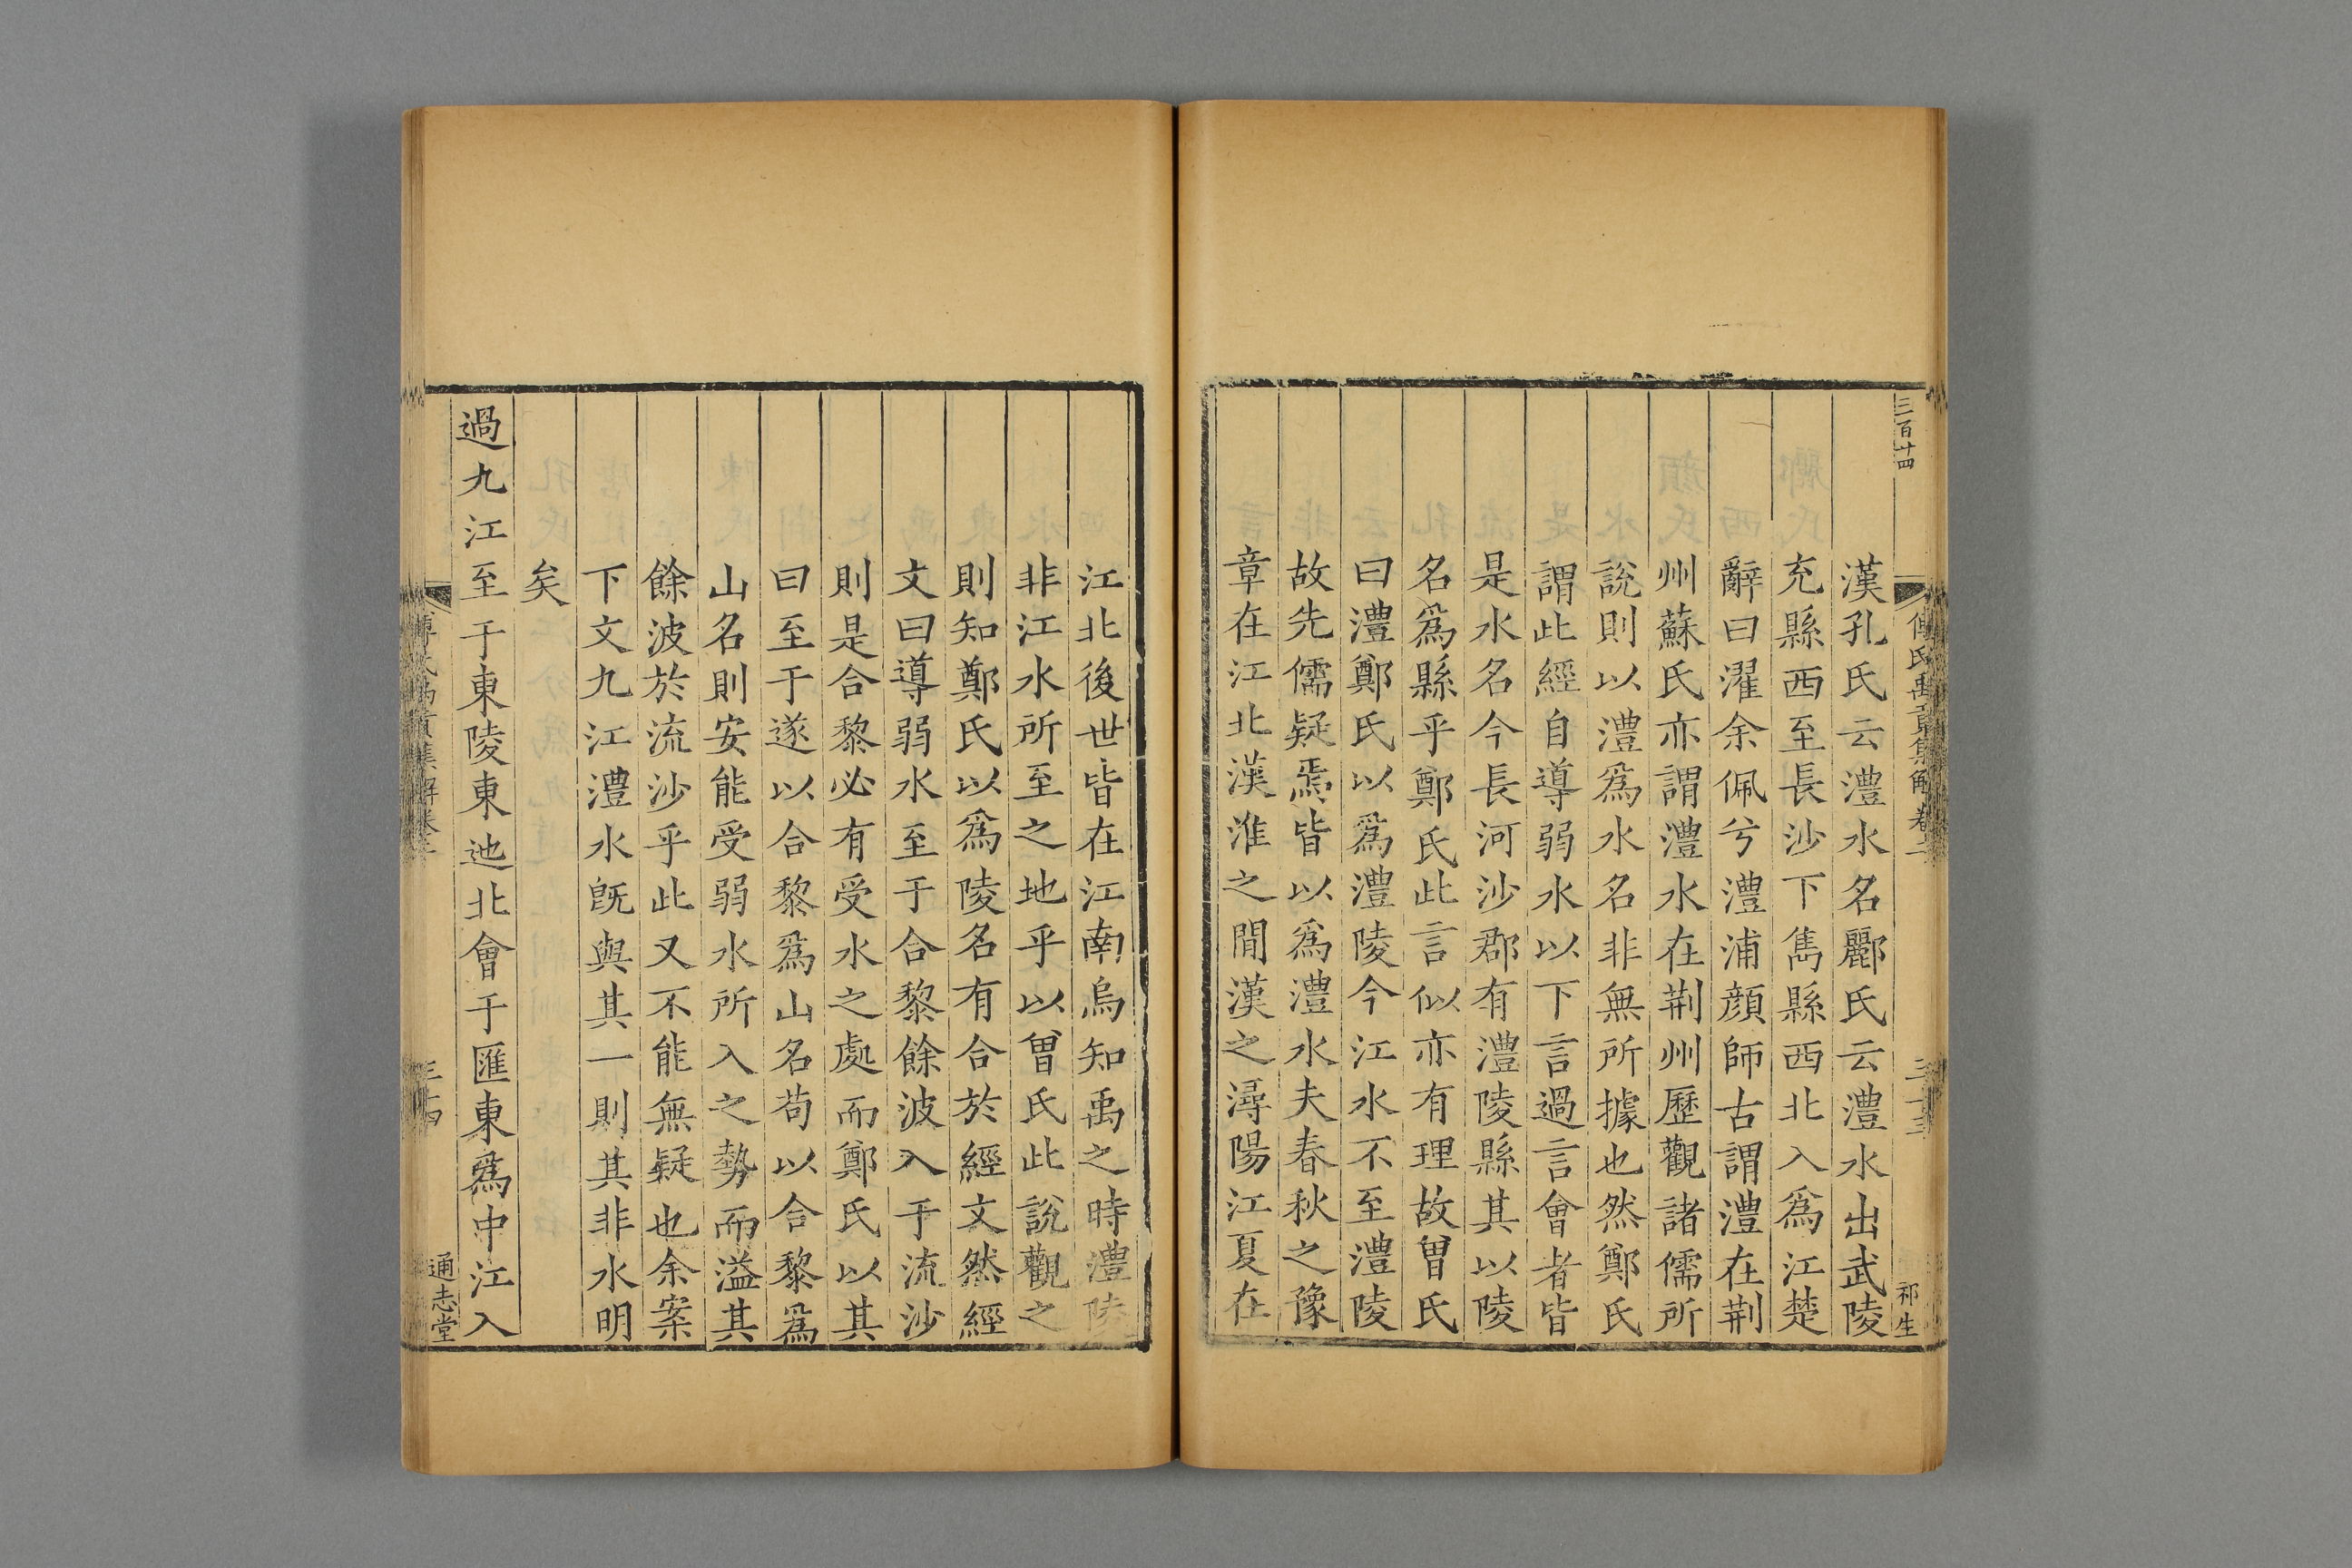 三百十四
傅氏禹貢集解卷二
三十三
祁生
漢孔氏云澧水名酈氏云澧水出武陵
充縣西至長沙下雋縣西北入爲江楚
辭曰濯余佩兮澧浦顏師古謂澧在荆
州蘇氏亦謂澧水在荆州歷觀諸儒所
說則以澧爲水名非無所據也然鄭氏
謂此經自導弱水以下言過言會者皆
是水名今長河沙郡有澧陵縣其以陵
名爲縣乎鄭氏此言似亦有理故曾氏
曰澧鄭氏以爲澧陵今江水不至澧陵
故先儒疑焉皆以爲澧水夫春秋之豫
章在江北漢淮之間漢之潯陽江夏在
江北後世皆在江南烏知禹之時澧陵
非江水所至之地乎以曾氏此說觀之
則知鄭氏以爲陵名有合於經文然經
文曰導弱水至于合黎餘波入于流沙
則是合黎必有受水之處而鄭氏以其
曰至于遂以合黎爲山名苟以合黎爲
山名則安能受弱水所入之勢而溢其
餘波於流沙乎此又不能無疑也余案
下文九江澧水旣與其一則其非水明
矣
過九江至于東陵東迆北會于匯東爲中江入
傅氏禹貢集解卷二
三十四
通志堂